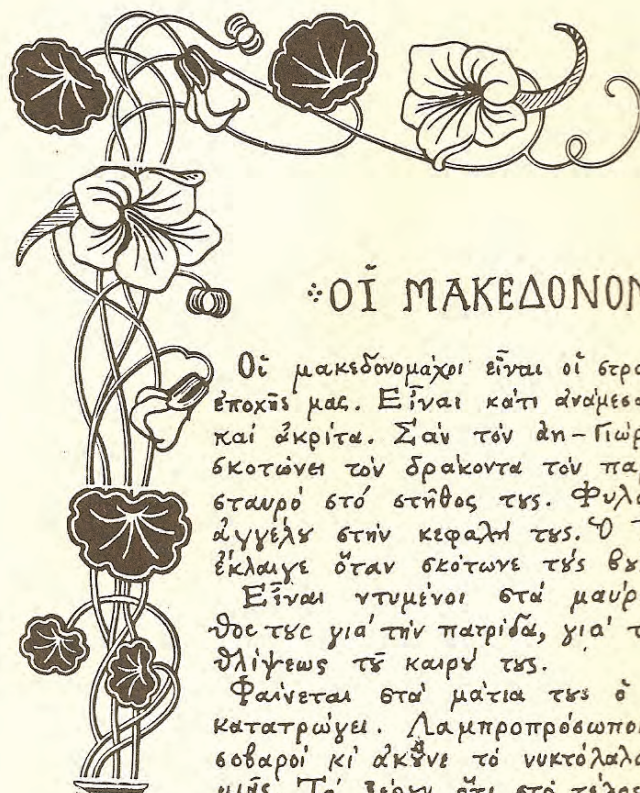 ΟἹ ΜΑΚΕΔΟΝΟ
Οἱ μακεδονομάχοι εἶναι οἱ στρα
ἐποχῆς μας. Εἶναι κάτι ἀνάμεσα
καί ἀκρίτα. Σαν τόν ἁη-Γιώρ
σκοτώνει τόν δράκοντα τον πα
σταυρό στό στῆθος τȣς. Φυλα
ἀγγέλȣ στήν κεφαλή τȣς. Ὁ
ἔκλαιγε ὅταν σκότωνε τȣ́ς βȣ
Εἶναι ντυμένοι στά μαῦρ
θος τȣς για' τήν πατρίδα, για'
θλίψεως τȣ͂ καιρȣ́ τȣς.
Φαίνεται στα' μάτια τȣς ὁ
κατατρώγει. Λαμπροπρόσωποι
σοβαροί κι' ἀκȣ̂νε τό νυκτόλαλο